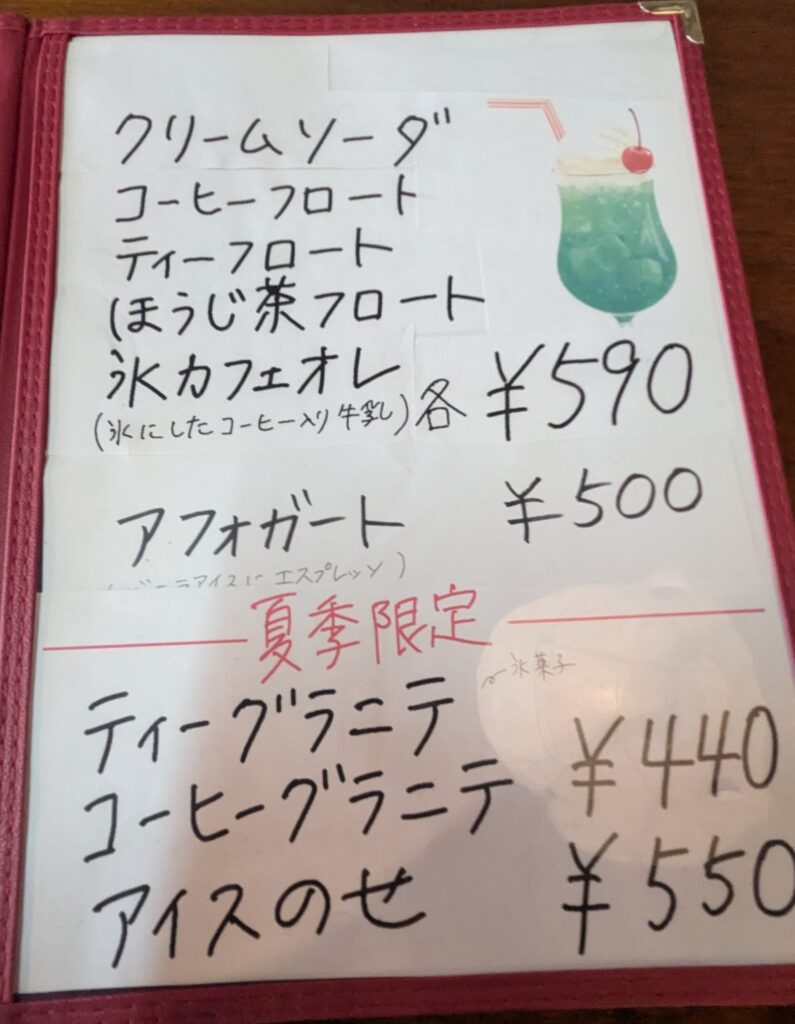 クリームソーダ
コーヒーフロート
ティーフロート
ほうじ茶フロート
氷カフェオレ
(氷にしたコーヒー入り牛乳) 各 ¥590
アフォガート ¥500
(バニラアイスに エスプレッソ)
夏季限定
氷菓子
ティーグラニテ
コーヒーグラニテ ¥440
アイスのせ ¥550